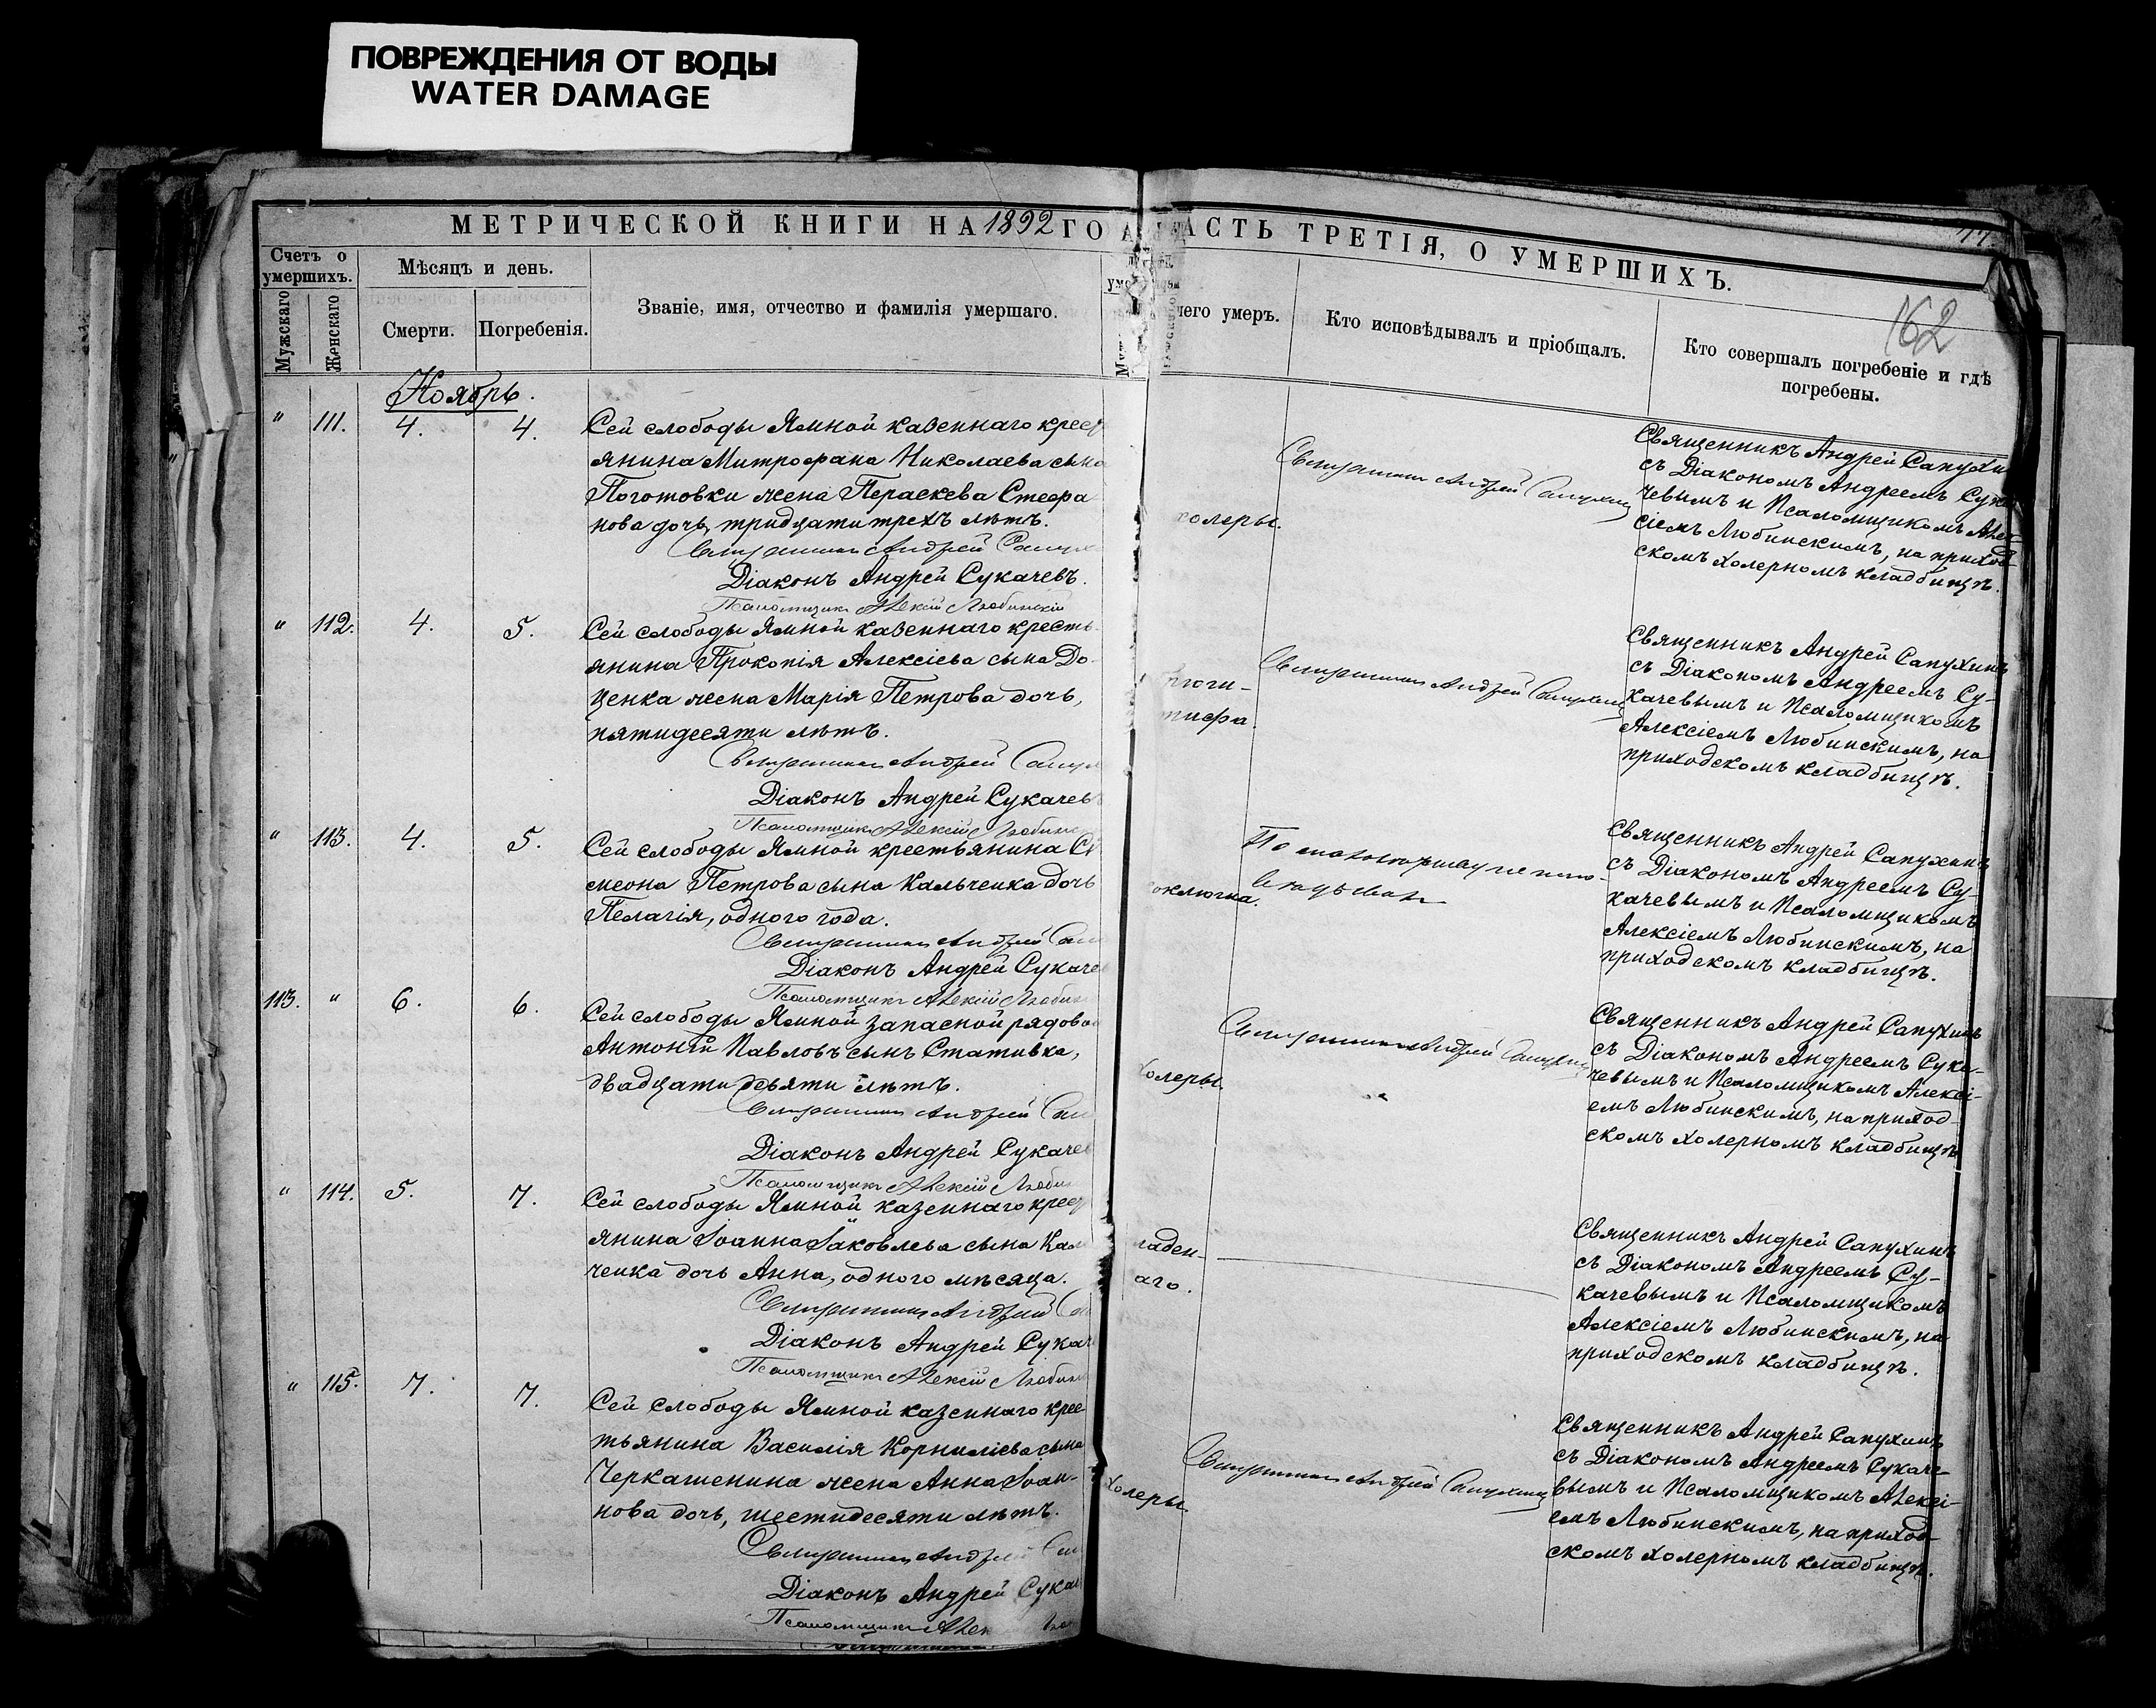 ПОВРЕЖДЕНИЯ ОТ ВОДЫ
WATER DAMAGE
МЕТРИЧЕСКОЙ КНИГИ НА 1892 ГО
АСТЬ ТРЕТІЯ, О УМЕРШИХЪ.
162
Счетъ о умершихъ.
Мужскаго
Женскаго
Мѣсяцъ и день.
Смерти.
Погребенія.
Званіе, имя, отчество и фамилія умершаго.
чего умеръ.
Кто исповѣдывалъ и пріобщалъ.
Кто совершалъ погребеніе и гдѣ
погребены.
Ноябрь.
" 111. 4. 4.
Сей слободы Ямной казеннаго крест
янина Митрофана Николаева сына
Поготовки жена Параскева Стефа
нова дочь, тридцати трехъ лѣтъ.
Священникъ Андрей Сапух
Діаконъ Андрей Сукачевъ.
Псаломщикъ Алексій Любинскій
холеры.
Священникъ Андрей Сапухинъ
Священникъ Андрей Сапухи
съ Діакономъ Андреемъ Сука
чевымъ и Псаломщикомъ Алек
сіемъ Любинскимъ, на приход
скомъ холерномъ кладбищѣ.
" 112. 4. 5.
Сей слободы Ямной казеннаго кресть
янина Прокопія Алексіева сына До
ценка жена Марія Петрова дочь,
пятидесяти лѣтъ.
Священникъ Андрей Сапух
Діаконъ Андрей Сукачев
Псаломщикъ Алексій Любинс
тифа.
Священникъ Андрей Сапухинъ
Священникъ Андрей Сапухинъ
съ Діакономъ Андреемъ Су-
качевымъ и Псаломщикомъ
Алексіемъ Любинскимъ, на
приходскомъ кладбищѣ.
" 113. 4. 5.
Сей слободы Ямной крестьянина Си
меона Петрова сына Кальченка дочь
Пелагія, одного года.
Священникъ Андрей Сап
Діаконъ Андрей Сукаче
Псаломщикъ Алексій Любин
оклюша.
По
Священникъ Андрей Сапухинъ
съ Діакономъ Андреемъ Су-
качевымъ и Псаломщикомъ
Алексіемъ Любинскимъ, на
приходскомъ кладбищѣ.
113. " 6. 6.
Сей слободы Ямной запасной рядово
Антоній Павловъ сынъ Стативка,
двадцати девяти лѣтъ.
Священникъ Андрей Сап
Діаконъ Андрей Сукаче
Псаломщикъ Алексій Любин
холеры.
Священникъ Андрей Сапухинъ
Священникъ Андрей Сапухинъ
съ Діакономъ Андреемъ Сука-
чевымъ и Псаломщикомъ Алексі-
емъ Любинскимъ, на приход-
скомъ холерномъ кладбищѣ
" 114. 5. 7.
Сей слободы Ямной казеннаго крест
янина Іоанна Іаковлева сына Каль
ченка дочь Анна, одного мѣсяца.
Священникъ Андрей Сап
Діаконъ Андрей Сукаче
Псаломщикъ Алексій Любинс
ладен-
аго.
Священникъ Андрей Сапухинъ
съ Діакономъ Андреемъ Су-
качевымъ и Псаломщикомъ
Алексіемъ Любинскимъ, на
приходскомъ кладбищѣ.
" 115. 7. 7.
Сей слободы Ямной казеннаго крес-
тьянина Василія Корниліева сына
Черкашенина жена Анна Іоан-
нова дочь, шестидесяти лѣтъ.
Священникъ Андрей Сап
Діаконъ Андрей Сукач
Псаломщикъ Алек
холеры.
Священникъ Андрей Сапухинъ
Священникъ Андрей Сапухинъ
съ Діакономъ Андреемъ Сукаче-
вымъ и Псаломщикомъ Алексі-
емъ Любинскимъ, на приход-
скомъ холерномъ кладбищѣ.